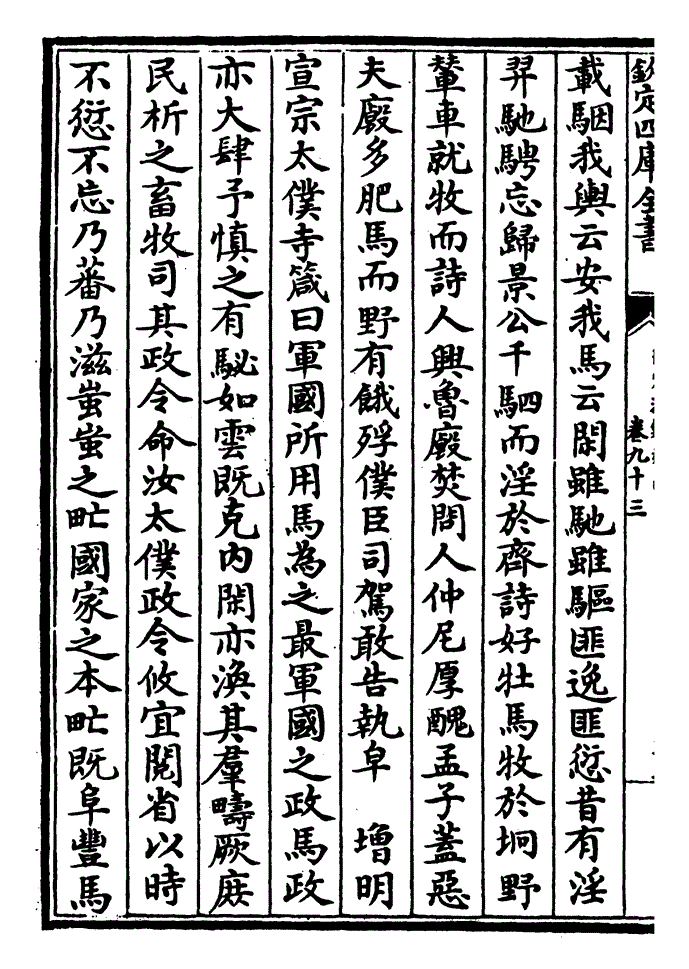 欽定四庫全書
卷九十三
載駰我輿云安我馬云閑雖馳雖驅匪逸匪愆昔有淫
羿馳騁忘歸景公千駟而淫於齊詩好牡馬牧於坰野
輦車就牧而詩人興魯廄焚問人仲尼厚醜孟子蓋惡
夫廄多肥馬而野有餓殍僕臣司駕敢告執皁　增明
宣宗太僕寺箴曰軍國所用馬為之最軍國之政馬政
亦大肆予慎之有駜如雲既克內閑亦渙其羣疇厥庶
民析之畜牧司其政令命汝太僕政令攸宜閱省以時
不愆不忘乃蕃乃滋蚩蚩之甿國家之本甿既阜豐馬